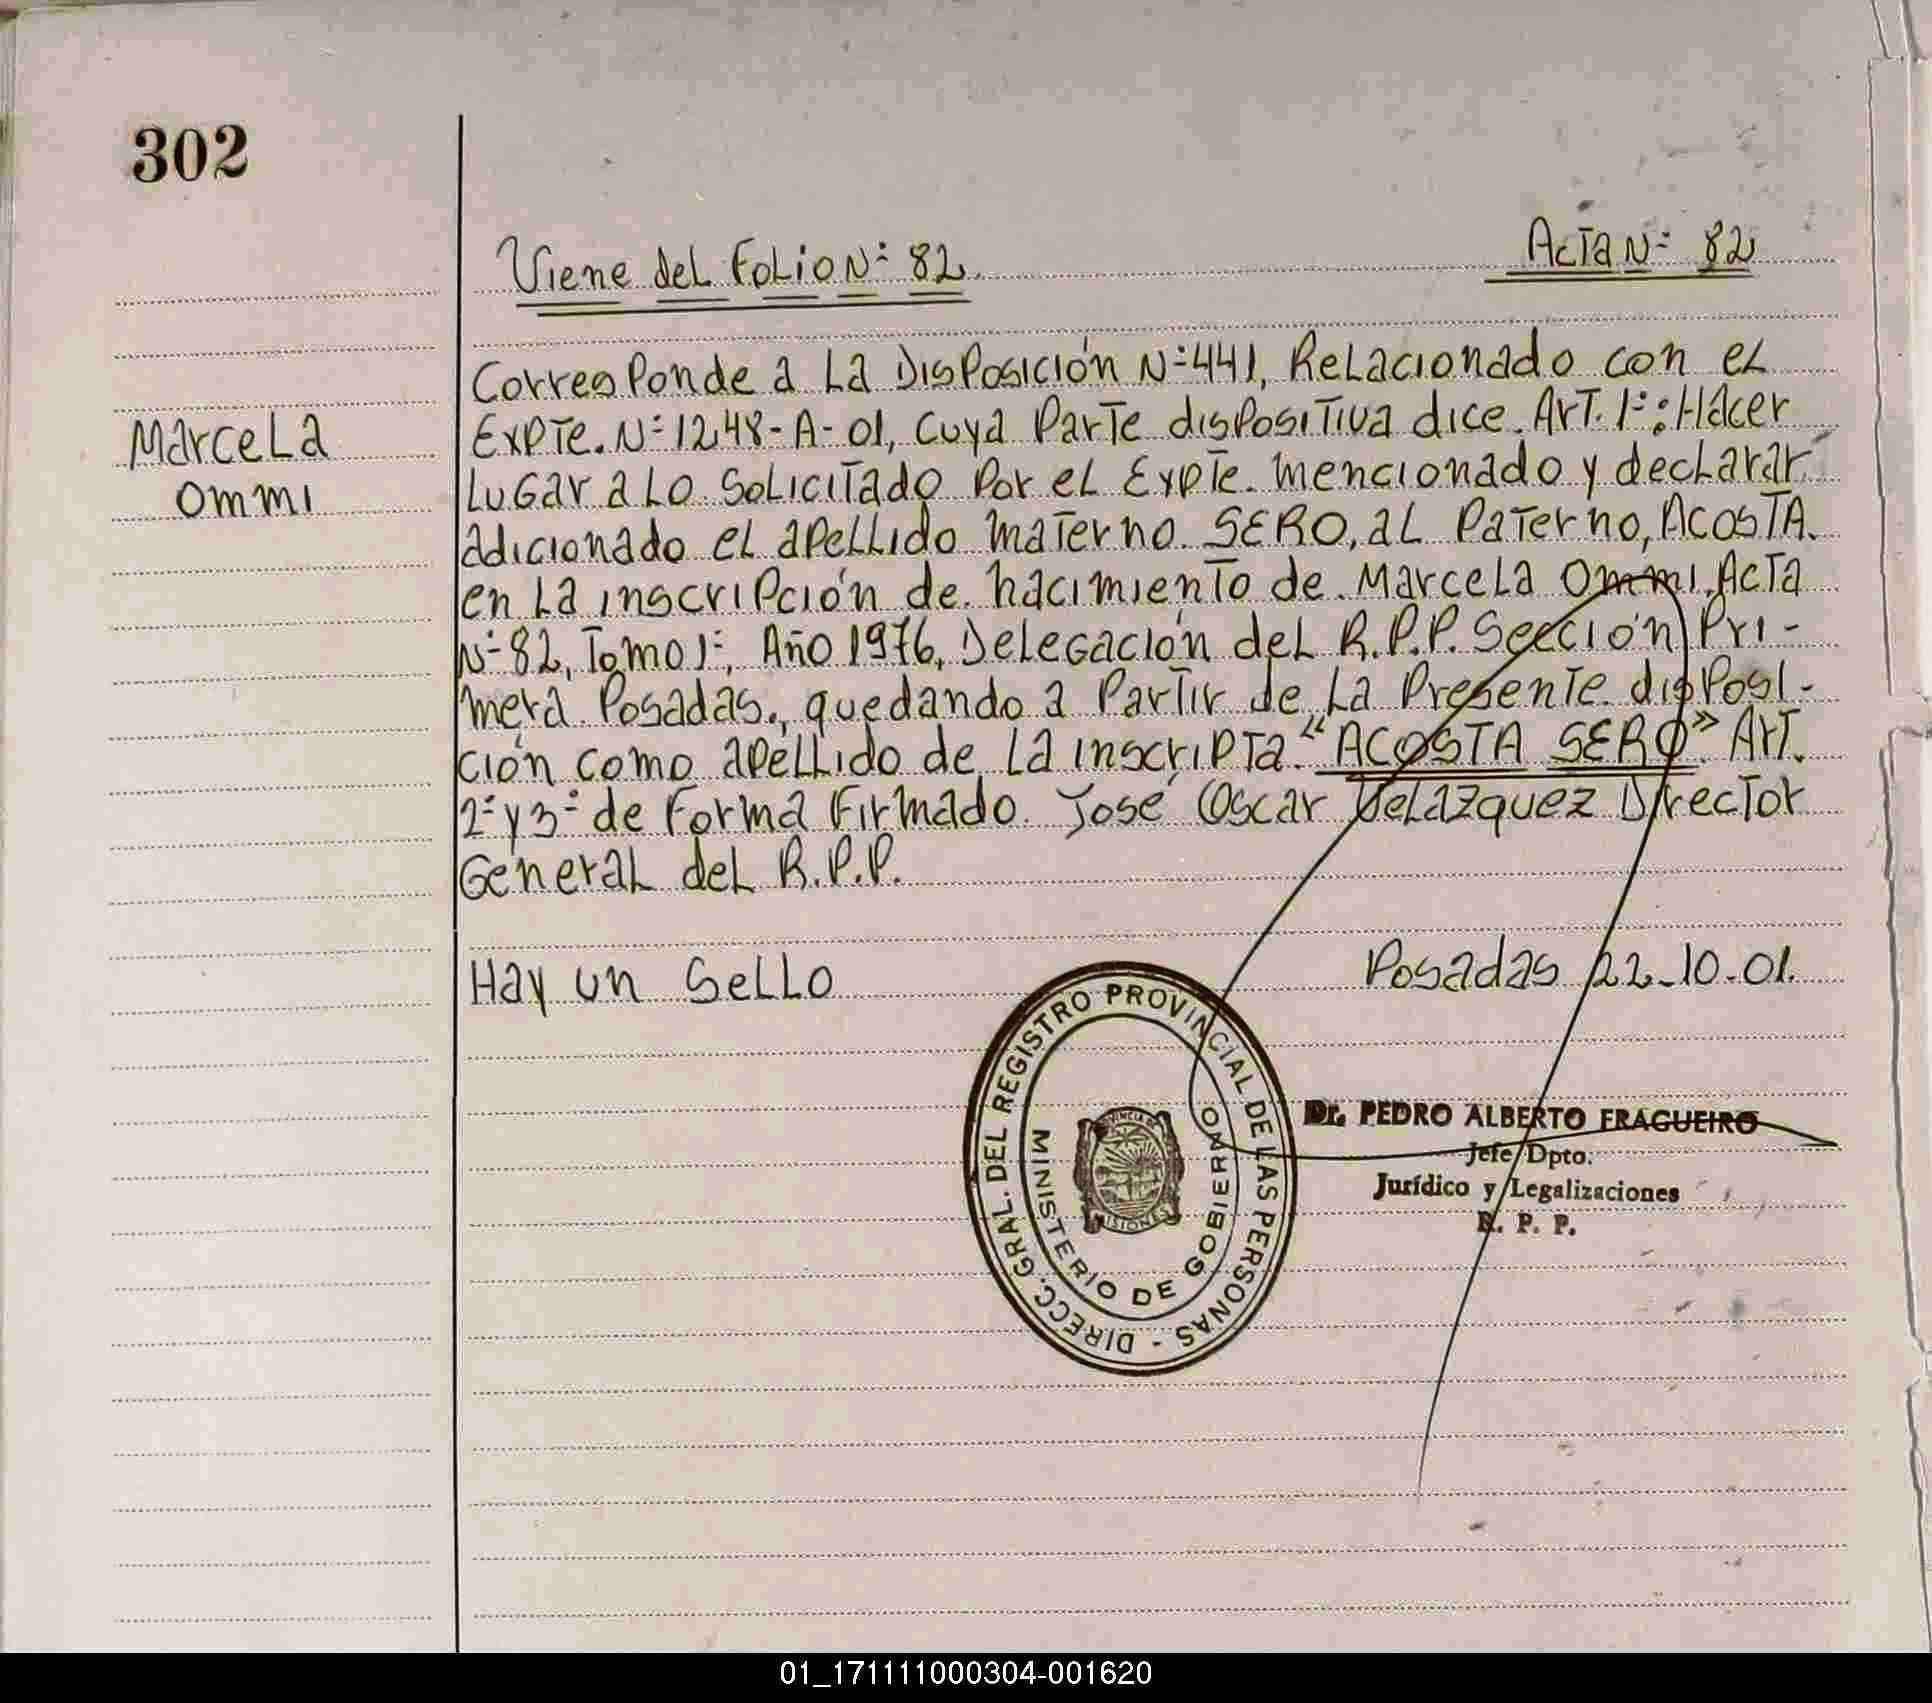 302
Viene del Folio N° 82.
Acta N° 82
Marcela
Ommi
Corresponde a La Disposición N° 441, Relacionado con el
Expte. N° 1248-A-01, cuya Parte dispositiva dice. Art. 1°: Hacer
Lugar a lo Solicitado Por el Expte. mencionado y declarar
adicionado el apellido materno SERO, al Paterno, ACOSTA.
en La inscripción de nacimiento de Marcela Ommi, Acta
N° 82, Tomo 1°, Año 1976, Delegación del R.P.P. Sección Pri-
mera Posadas., quedando a Partir de La Presente disposi-
ción como apellido de La inscripta. "ACOSTA SERO" Art.
2° y 3° de Forma Firmado. José Oscar Velazquez Director
General del R.P.P.
Hay un Sello
Posadas 22-10-01.
DIRECC. GRAL. DEL REGISTRO PROVINCIAL DE LAS PERSONAS -
MINISTERIO DE GOBIERNO
PROVINCIA DE
MISIONES
Dr. PEDRO ALBERTO FRAGUEIRO
Jefe Dpto.
Jurídico y Legalizaciones
R. P. P.
01_171111000304-001620